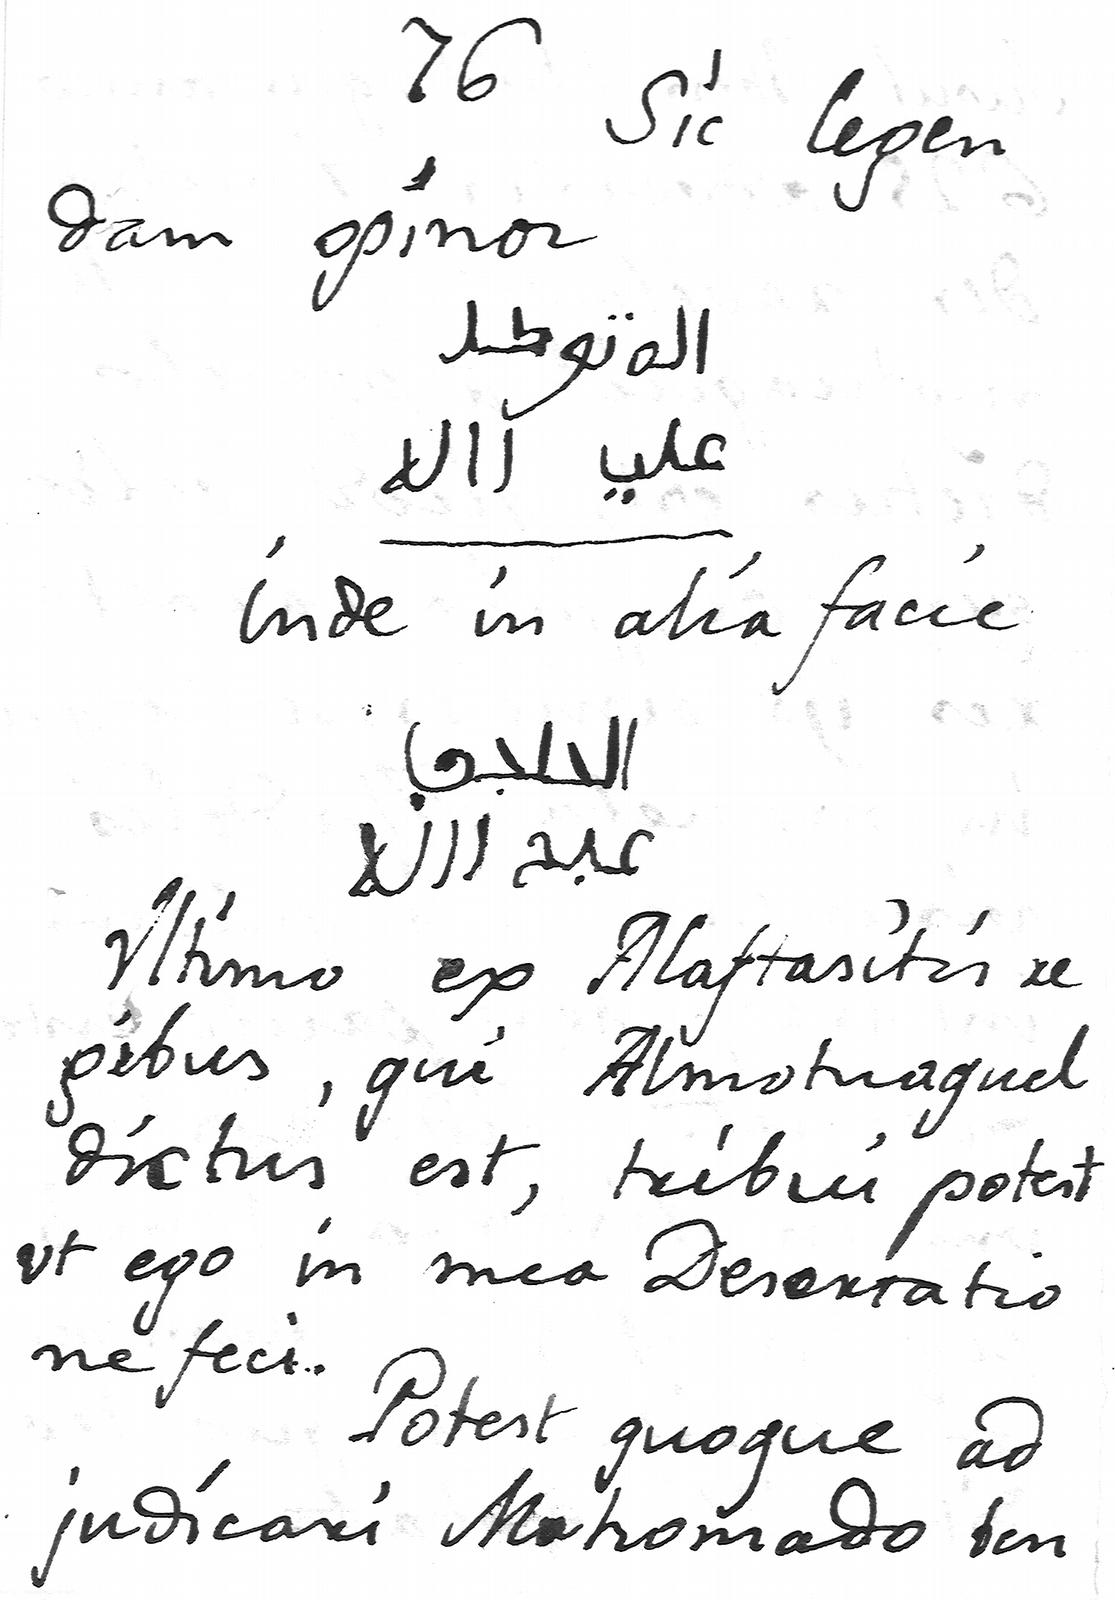 76 Sic legen
dam opinor
المتوكل
علي االله
inde in alia facie
الحاجب
عبد االله
Vltimo ex Alaftasitis re
gibus, qui Almotuaguel
dictus est, tribui potest
vt ego in mea Deserratio
ne feci..
Potest quoque ad
judicari Mohomado ben